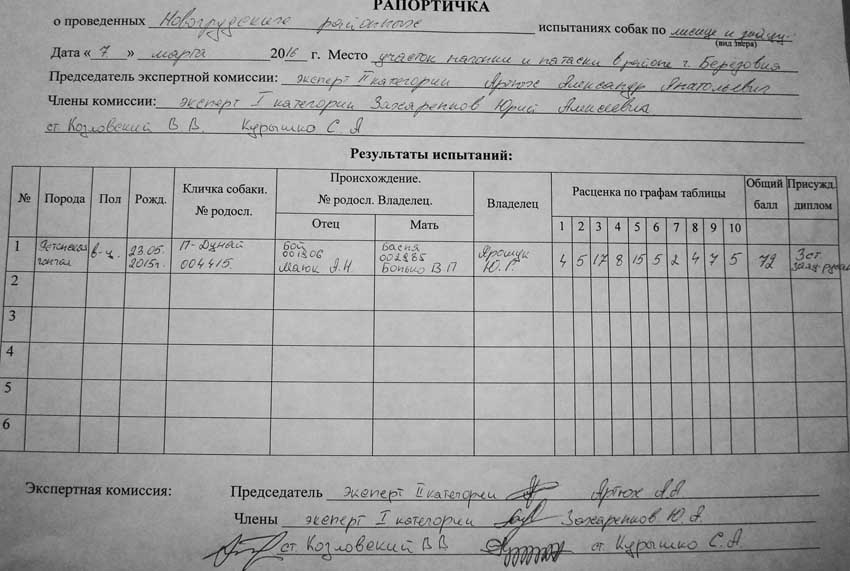 РАПОРТИЧКА
о проведенных Новогрудских районных испытаниях собак по лисице и зайцу
(вид зверя)
Дата « 7 » марта 2016 г. Место участок нагонки и натаски в районе г. Березовка
Председатель экспертной комиссии: эксперт II категории Артюх Александр Анатольевич
Члены комиссии: эксперт I категории Захаренков Юрий Алексеевич
ст. Козловский В В. Курышко С. А
Результаты испытаний:
№ Порода Пол Рожд. Кличка собаки. № родосл. Происхождение. № родосл. Владелец. Владелец Расценка по графам таблицы Общий балл Присужд. диплом
Отец Мать 1 2 3 4 5 6 7 8 9 10
1 Эстонская гончая в-ц. 23.05. 2015г. П-Дунай 004415. Бой 001306 А.Н. Басня 002285 Бонько В П Ярощук Ю. Г. 4 5 17 8 15 5 2 4 7 5 72 3 ст.
2
3
4
5
6
Экспертная комиссия: Председатель эксперт II категории Артюх А.А.
Члены эксперт I категории Захаренков Ю.А.
ст. Козловский В В ст. Курышко С.А.